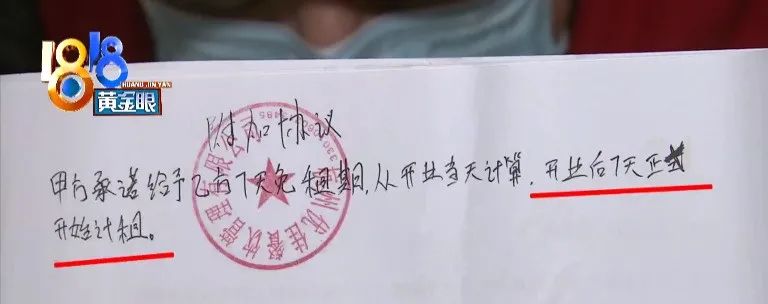 1818
HUANG JIN YAN
黄金眼
附加协议
甲方承诺给予乙方7天免租期,从开业当天计算,开业后7天正式
开始计租。
州优佳餐饮管理有限公司